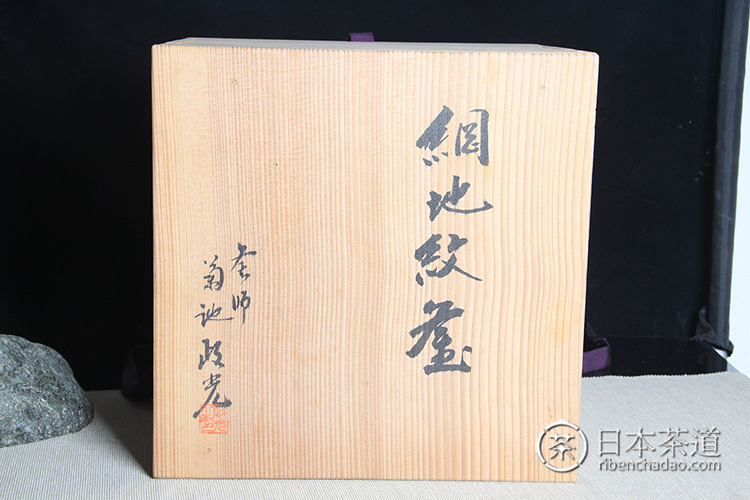 網地紋釜
釜師
菊池政光
茶
日本茶道
ribenchadao.com